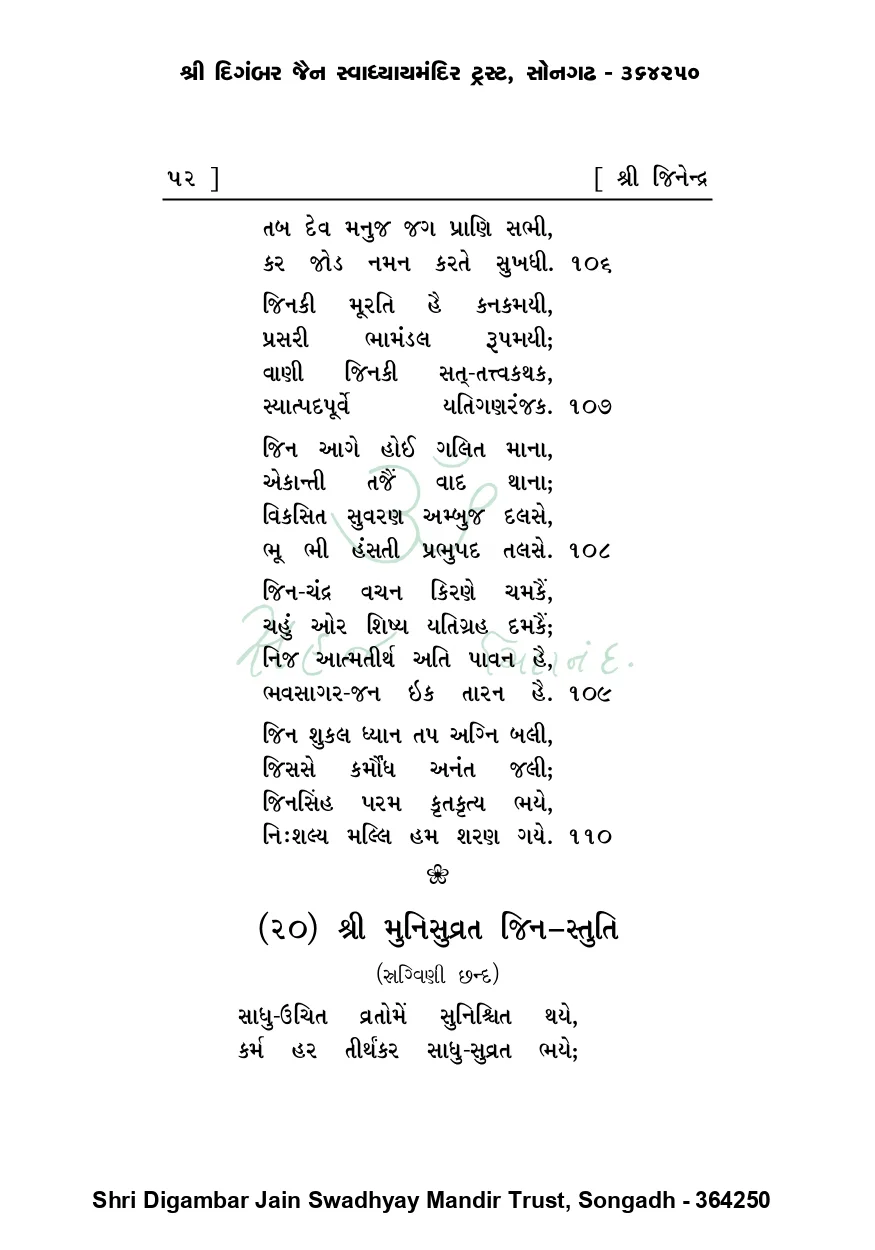 શ્રી દિગંબર જૈન સ્વાધ્યાયમંદિર ટ્રસ્ટ, સોનગઢ - ૩૬૪૨૫૦
૫૨ ] [ શ્રી જિનેન્દ્ર
તબ દેવ મનુજ જગ પ્રાણિ સભી,
કર જોડ નમન કરતે સુખધી. ૧૦૬
જિનકી મૂરતિ હૈ કનકમયી,
પ્રસરી ભામંડલ રૂપમયી;
વાણી જિનકી સત્-તત્ત્વકથક,
સ્યાત્પદપૂર્વે યતિગણરંજક. ૧૦૭
જિન આગે હોઈ ગલિત માના,
એકાન્તી તજૈં વાદ થાના;
વિકસિત સુવરણ અમ્બુજ દલસે,
ભૂ ભી હંસતી પ્રભુપદ તલસે. ૧૦૮
જિન-ચંદ્ર વચન કિરણે ચમકૈં,
ચહું ઓર શિષ્ય યતિગ્રહ દમકૈં;
નિજ આત્મતીર્થ અતિ પાવન હૈ,
ભવસાગર-જન ઇક તારન હૈ. ૧૦૯
જિન શુકલ ધ્યાન તપ અગ્નિ બલી,
જિસસે કર્મૌંઘ અનંત જલી;
જિનસિંહ પરમ કૃતકૃત્ય ભયે,
નિઃશલ્ય મલ્લિ હમ શરણ ગયે. ૧૧૦
(૨૦) શ્રી મુનિસુવ્રત જિન–સ્તુતિ
(સ્રગ્વિણી છન્દ)
સાધુ-ઉચિત વ્રતોમેં સુનિશ્ચિત થયે,
કર્મ હર તીર્થંકર સાધુ-સુવ્રત ભયે;
ૐ
સહજ ચિદાનંદ.
Shri Digambar Jain Swadhyay Mandir Trust, Songadh - 364250